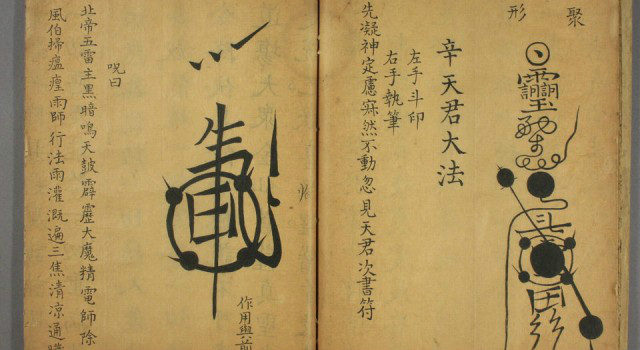 聚形
辛天君大法
左手斗印
右手執筆
先凝神定慮寂然不動忽見天君次書符
作用與前
呪曰
北帝五雷主黑暗鳴天鼓霹靂大魔精電師除
風伯掃瘟雨師行法雨灌溉遍三焦清凉通